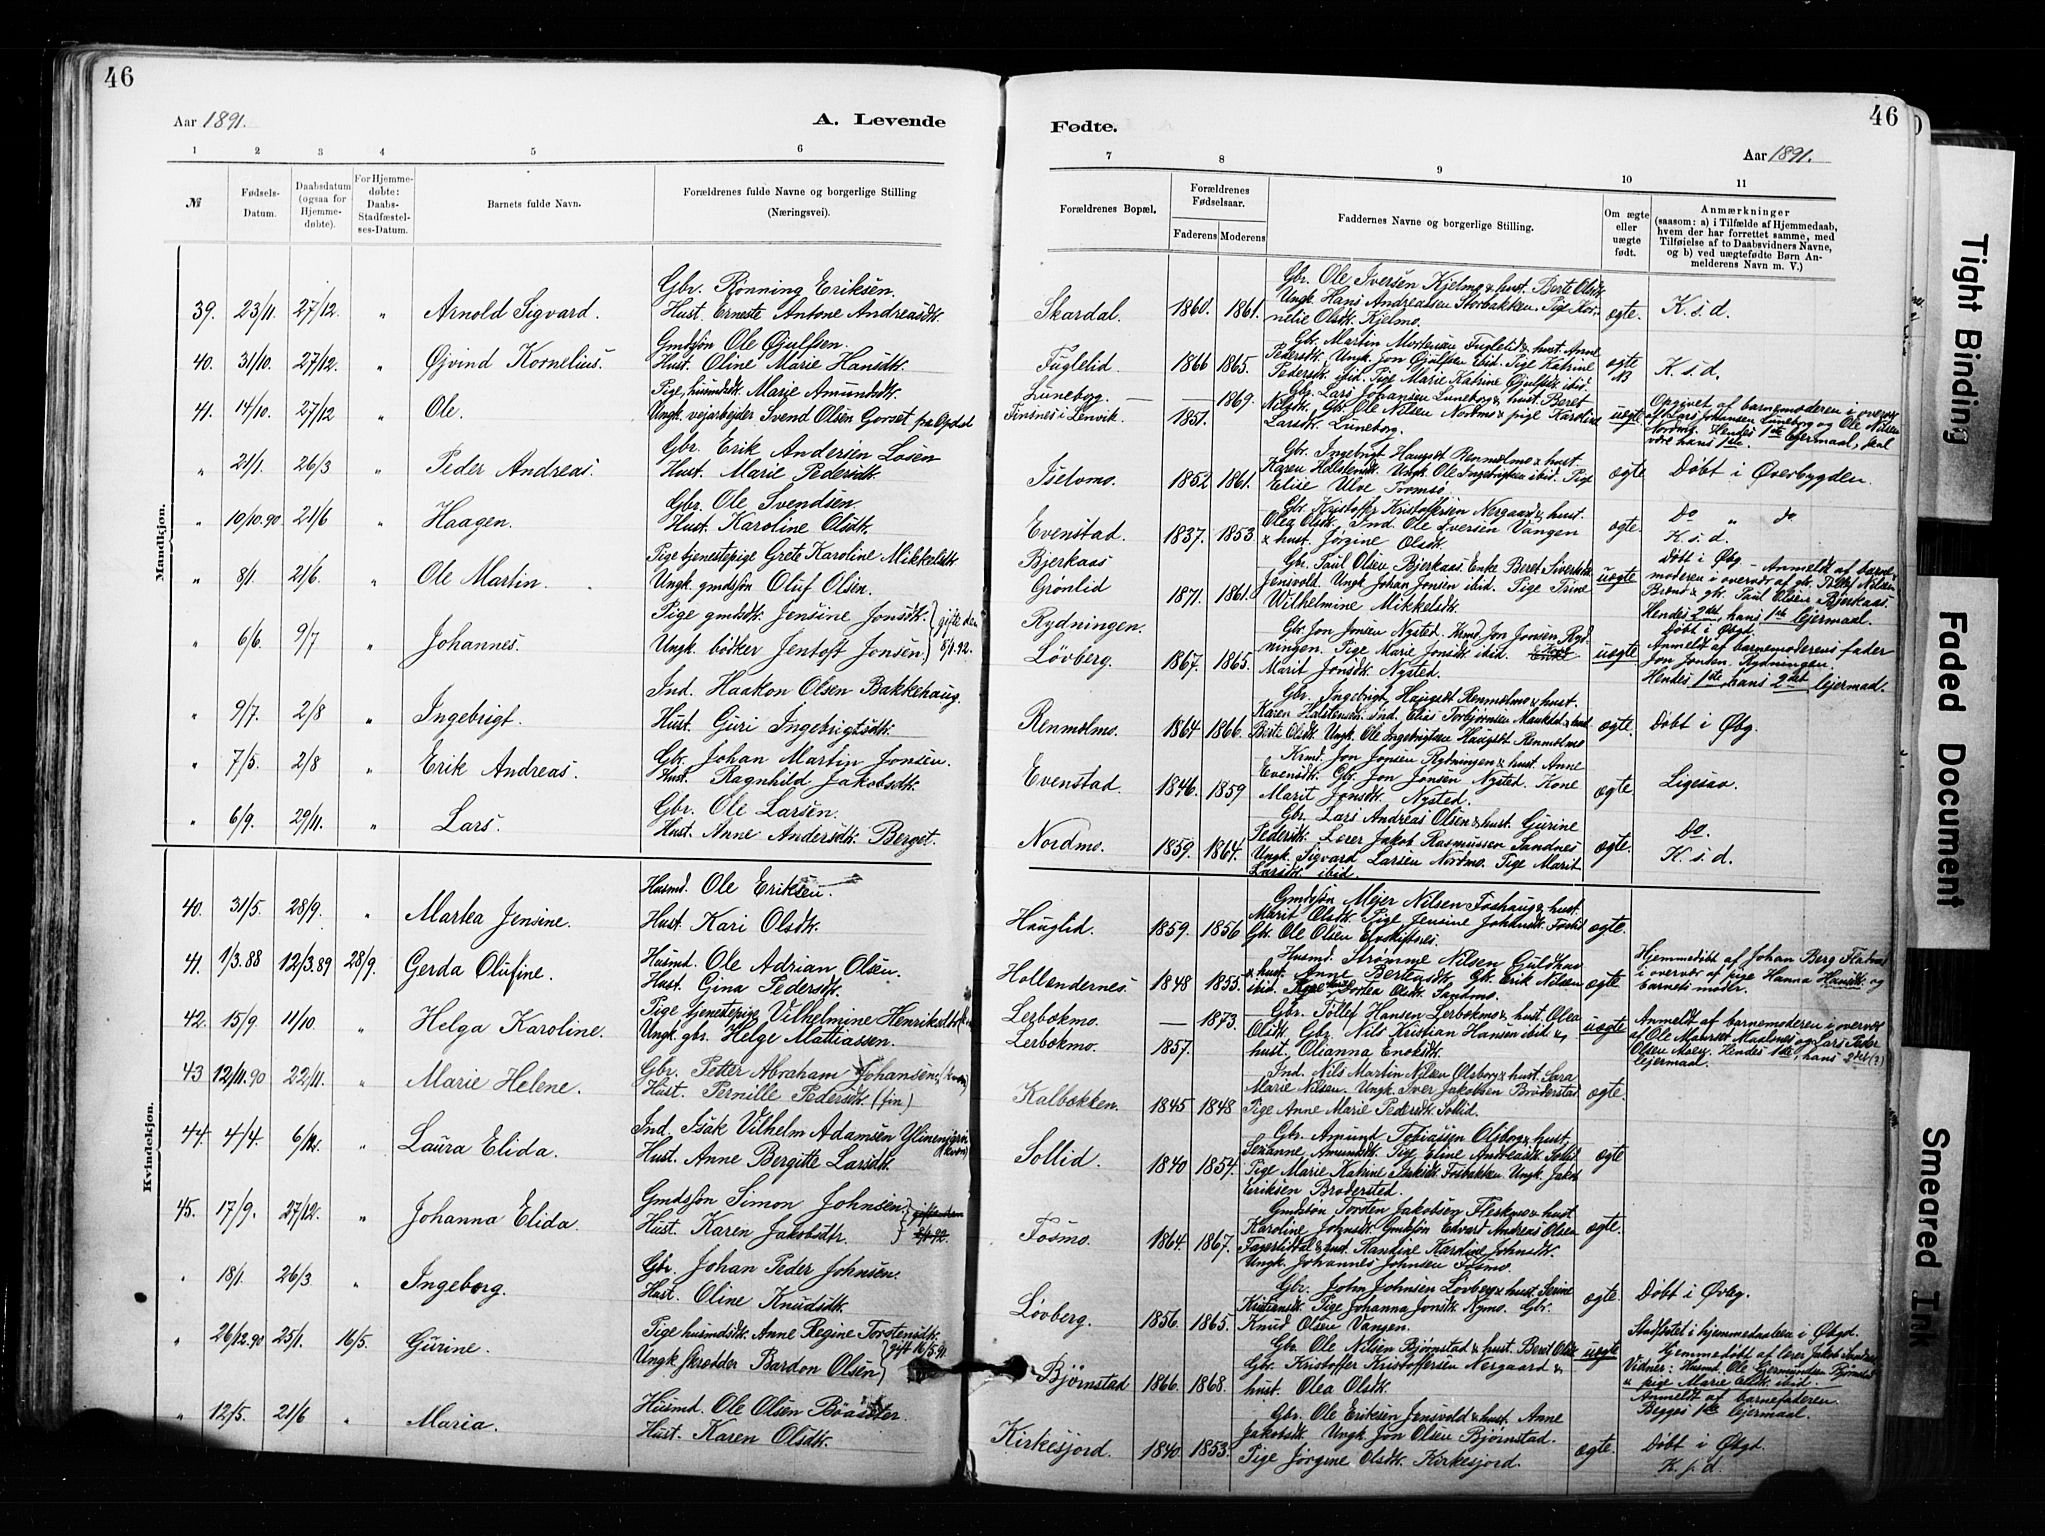 46
Aar 1891.
A. Levende
1 2 3 4 5 6
№
Fødsels-Datum.
Daabsdatum (ogsaa for Hjemme-døbte).
For Hjemme-døbte: Daabs-Stadfæstel-ses-Datum.
Barnets fulde Navn.
Forældrenes fulde Navne og borgerlige Stilling (Næringsvei).
Mandkjøn.
Gbr. Rønning Eriksen.
39. 23/11. 27/12. " Arnold Sigvard. Hust. Erneste Antone Andreasdtr.
Gmdsøn Ole Ojulfsen.
40. 31/10. 27/12. " Øjvind Kornelius. Hust. Oline Marie Hansdtr.
Pige, husmdsdtr. Marie Amundsdtr.
41. 14/10. 27/12 " Ole. Ungk. vejarbejder Svend Olsen Gorset fra Opdal
Gbr. Erik Andersen Løsen
" 21/1. 26/3 " Peder Andreas. Hust. Marie Pedersdtr.
Gbr. Ole Svendsen
" 10/10.90 21/6 " Haagen. Hust. Karoline Olsdtr.
Pige tjenestepige Grete Karoline Mikkelsdtr.
" 8/1. 21/6. " Ole Martin. Ungk. gmdsøn Oluf Olsen.
Pige gmdsdtr. Jensine Jonsdtr. } gifte den
" 6/6. 9/7 " Johannes. Ungk. bødker Jentoft Jonsen. } 5/1.92.
Ind. Haakon Olsen Bakkehaug.
" 9/7. 2/8 " Ingebrigt. Hust. Guri Ingebrigtsdtr.
Gbr. Johan Martin Jonsen.
" 7/5. 2/8 " Erik Andreas. Hust. Ragnhild Jakobsdtr.
Gbr. Ole Larsen.
" 6/9. 29/11. " Lars. Hust. Anne Andersdtr. Berget.
Kvindekjøn.
Husmd. Ole Eriksen.
40. 31/5. 28/9. " Martea Jensine. Hust. Kari Olsdtr.
41. 1/3.88 12/3.89 28/9. Gerda Olufine. Husmd. Ole Adrian Olsen.
Hust. Gina Pedersdtr.
42. 15/9. 11/10. " Helga Karoline. Pige tjenestepige Vilhelmine Henriksdtr.
Ungk. gbr. Helge Mattiassen.
43 12/11.90 22/11. " Marie Helene. Gbr. Petter Abraham Johansen. (kvæn)
Hust. Pernille Pedersdtr. (fin)
44. 4/4. 6/12. " Laura Elida. Ind. Isak Vilhelm Adamsen
Hust. Anne Bergitte Larsdtr.
45. 17/9. 27/12. " Johanna Elida. Gmdsøn Simon Johnsen.
Hust. Karen Jakobsdtr.
" 18/1. 26/3. " Ingeborg. Gbr. Johan Peder Johnsen.
Hust. Oline Knudsdtr.
" 26/12.90 25/1. 16/5. Gurine. Pige husmdsdtr. Anne Regine Torstensdtr.
Ungk. skrædder Bardon Olsen } gift 16/5.91.
" 12/5. 21/6 " Maria. Husmd. Ole Olsen
Hust. Karen Olsdtr.
46
Fødte.
Aar 1891.
7 8 9 10 11
Forældrenes Bopæl.
Forældrenes Fødselsaar.
Faderens Moderens
Faddernes Navne og borgerlige Stilling.
Om ægte eller uægte født.
Anmærkninger
(saasom: a) i Tilfælde af Hjemmedaab,
hvem der har forrettet samme, med
Tilføielse af to Daabsvidners Navne,
og b) ved uægtefødte Børn An-
melderens Navn m. V.)
Gbr. Ole Iversen Kjelmo & hust. Berte Olsdtr.
Skardal. 1860. 1861. Ungk. Hans Andreassen Storbakken. Pige Kor- ægte. K. s. d.
nelie Olsdtr. Kjelmo.
Gbr. Martin Mortensen Fuglelid & hust. Anne
Fuglelid 1866 1865. Pedersdtr. Ungk. Jon Ojulfsen ibid. Pige Katrine ægte NB K. s. d.
Pedersdtr. ibid. Pige Marie Katrine Ojulfsdtr. ibid.
Luneborg. — 1869. Gbr. Lars Johansen Luneborg & hust. Beret
Finsnes i Lenvik. 1851. Nilsdtr. Gbr. Ole Nilsen Nordmo & pige Karoline uægte
Larsdtr. Luneborg.
Opgivet af barnemoderen i overvær
af Lars Johansen Luneborg og Ole Nilsen
Nordmo. Hendes 1ste lejermaal, skal
være hans 1ste.
Gbr. Ingebrigt Haugset Renmolmo & hust.
Iselvmo. 1852 1861. Karen Halstensdtr. Ungk. Ole Ingebrigtsen ibid. Pige ægte Døbt i Øverbygden.
Elise Ulve Tromsø
Gbr. Kristoffer Kristoffersen Nergaard & hust.
Evenstad. 1837. 1853 Olea Olsdtr. Ind. Ole Iversen Vangen ægte. Do " do
& hust. Jørgine Olsdtr. K. s. d.
Bjerkaas Gbr. Paul Olsen Bjerkaas. Enke Beret Sivertsdtr.
Grønlid 1871. 1861. Jensvold. Ungk. Johan Jonsen ibid. Pige Trine uægte
Wilhelmine Mikkelsdtr.
Døbt i Øbg. – Anmeldt af barne-
moderen i overvær af gbr. Nilsen
& gbr. Paul Olsen Bjerkaas.
Hendes 2det, hans 1ste lejermaal.
Rydningen. Gbr. Jon Jonsen Nysted. Krmd. Jon Jonsen Ryd-
Løvberg. 1867. 1865. ningen. Pige Marie Jonsdtr. ibid. uægte
Marit Jonsdtr. Nysted.
Døbt i Øbgd.
Anmeldt af barnemoderens fader
Jon Jonsen Rydningen.
Hendes 1ste, hans 2det lejermaal.
Gbr. Ingebrigt Haugset Renmolmo & hust.
Renmolmo. 1864 1866. Karen Halstensdtr. Ind. Elias Torbjørnsen Moukild & hust. ægte. Døbt i Øbg.
Berte Olsdtr. Ungk. Ole Ingebrigtsen Haugset Renmolmo
Krmd. Jon Jonsen Rydningen & hust. Anne
Evenstad. 1846. 1859 Evensdtr. Gbr. Jon Jonsen Nysted. Kone ægte. Ligesaa.
Marit Jonsdtr. Nysted.
Gbr. Lars Andreas Olsen & hust. Gurine
Nordmo. 1859. 1864. Pedersdtr. Lærer Jakob Rasmussen Sandnes ægte. Do.
Ungk. Sigvard Larsen Nordmo. Pige Marit K. s. d.
Larsdtr. ibid.
Gmdsøn Mejer Nilsen Foshaug & hust.
Hauglid. 1859. 1856 Marit Olsdtr. Pige Jensine Johansdtr. ægte.
Gbr. Ole Olsen Elvskiftnes.
Husmd. Strømme Nilsen Guldhav
Hollendernes. 1848 1855. & hust. Anne Berteusdtr. Gbr. Erik Nilsen ægte
ibid. Dortea Olsdtr. Sandmo.
Hjemmedøbt af Johan Berg
i overvær af pige Hanna Hansdtr. og
barnets moder.
Lerbækmo. — 1873. Gbr. Tollef Hansen Lerbækmo & hust. Olea
Lerbækmo. 1857. Olsdtr. Gbr. Nils Kristian Hansen ibid & uægte
hust. Olianna Enoksdtr.
Anmeldt af barnemoderen i overvær
af Ole Maursæt Maalsnes og Lars Peder
Olsen Moen. Hendes 1ste, hans 2det (?)
lejermaal.
Ind. Nils Martin Nilsen Olsborg & hust. Sara
Kalbækken. 1845 1848 Marie Nilsen. Ungk. Iver Jakobsen Brøderstad ægte.
Pige Anne Marie Pedersdtr. Sollid.
Gbr. Amund Tobiassen Olsborg & hust.
Sollid. 1840 1854. Amundsdtr. Pige Eline Andreasdtr. Sollid ægte
Pige Marie Katrine Isaksdtr. Fosbakken. Ungk. Jakob
Eriksen Brøderstad.
Gmdsøn Torsten Jakobsen Fleskmo & hust.
Fosmo. 1864. 1867. Karoline Johnsdtr. Gmdsøn Edvart Andreas Olsen ægte.
Fagerliddal & hust. Randine Karoline Johnsdtr.
Ungk. Johannes Johnsen Fosmo.
Gbr. John Johnsen Løvberg & hust. Serine
Løvberg. 1856. 1865. Kristiansdtr. Pige Johanna Jonsdtr. Nymo. Gbr. ægte. Døbt i Øvbg.
Knud Olsen Vangen.
Gbr. Ole Nilsen Bjørnstad & hust. Beret Olsdtr.
Bjørnstad 1866. 1868. Gbr. Kristoffer Kristoffersen Nergaard & uægte
hust. Olea Olsdtr.
Stadfæstet i hjemmedaaben i Øbgd.
Hjemmedøbt af lærer Jakob Sandnes
Vidner: Husmd. Ole Gjermundsen Bjørnstad
& pige Marie Olsdtr. ibid.
Anmeldt af barnefaderen.
Begges 1ste lejermaal.
Gbr. Ole Eriksen Jensvold & hust. Anne
Kirkesjord. 1840 1853. Jakobsdtr. Ungk. Jon Olsen Bjørnstad. ægte. Døbt i Øbgd.
Pige Jørgine Olsdtr. Kirkesjord. K. s. d.
Tight Binding
Faded Document
Smeared Ink